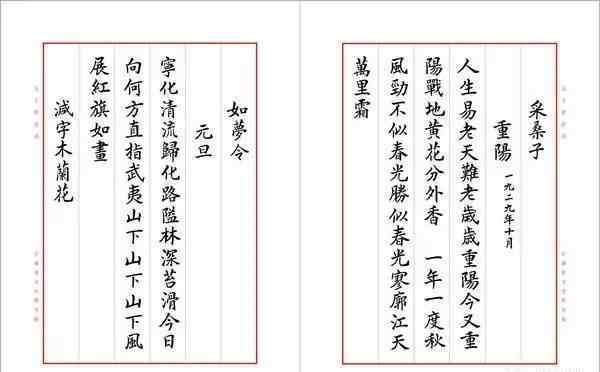 采桑子
重陽 一九二九年十月
人生易老天難老歲歲重陽今又重
陽戰地黃花分外香 一年一度秋
風勁不似春光勝似春光寥廓江天
萬里霜
如夢令
元旦
寧化清流歸化路隘林深苔滑今日
向何方直指武夷山下山下山下風
展紅旗如畫
減字木蘭花